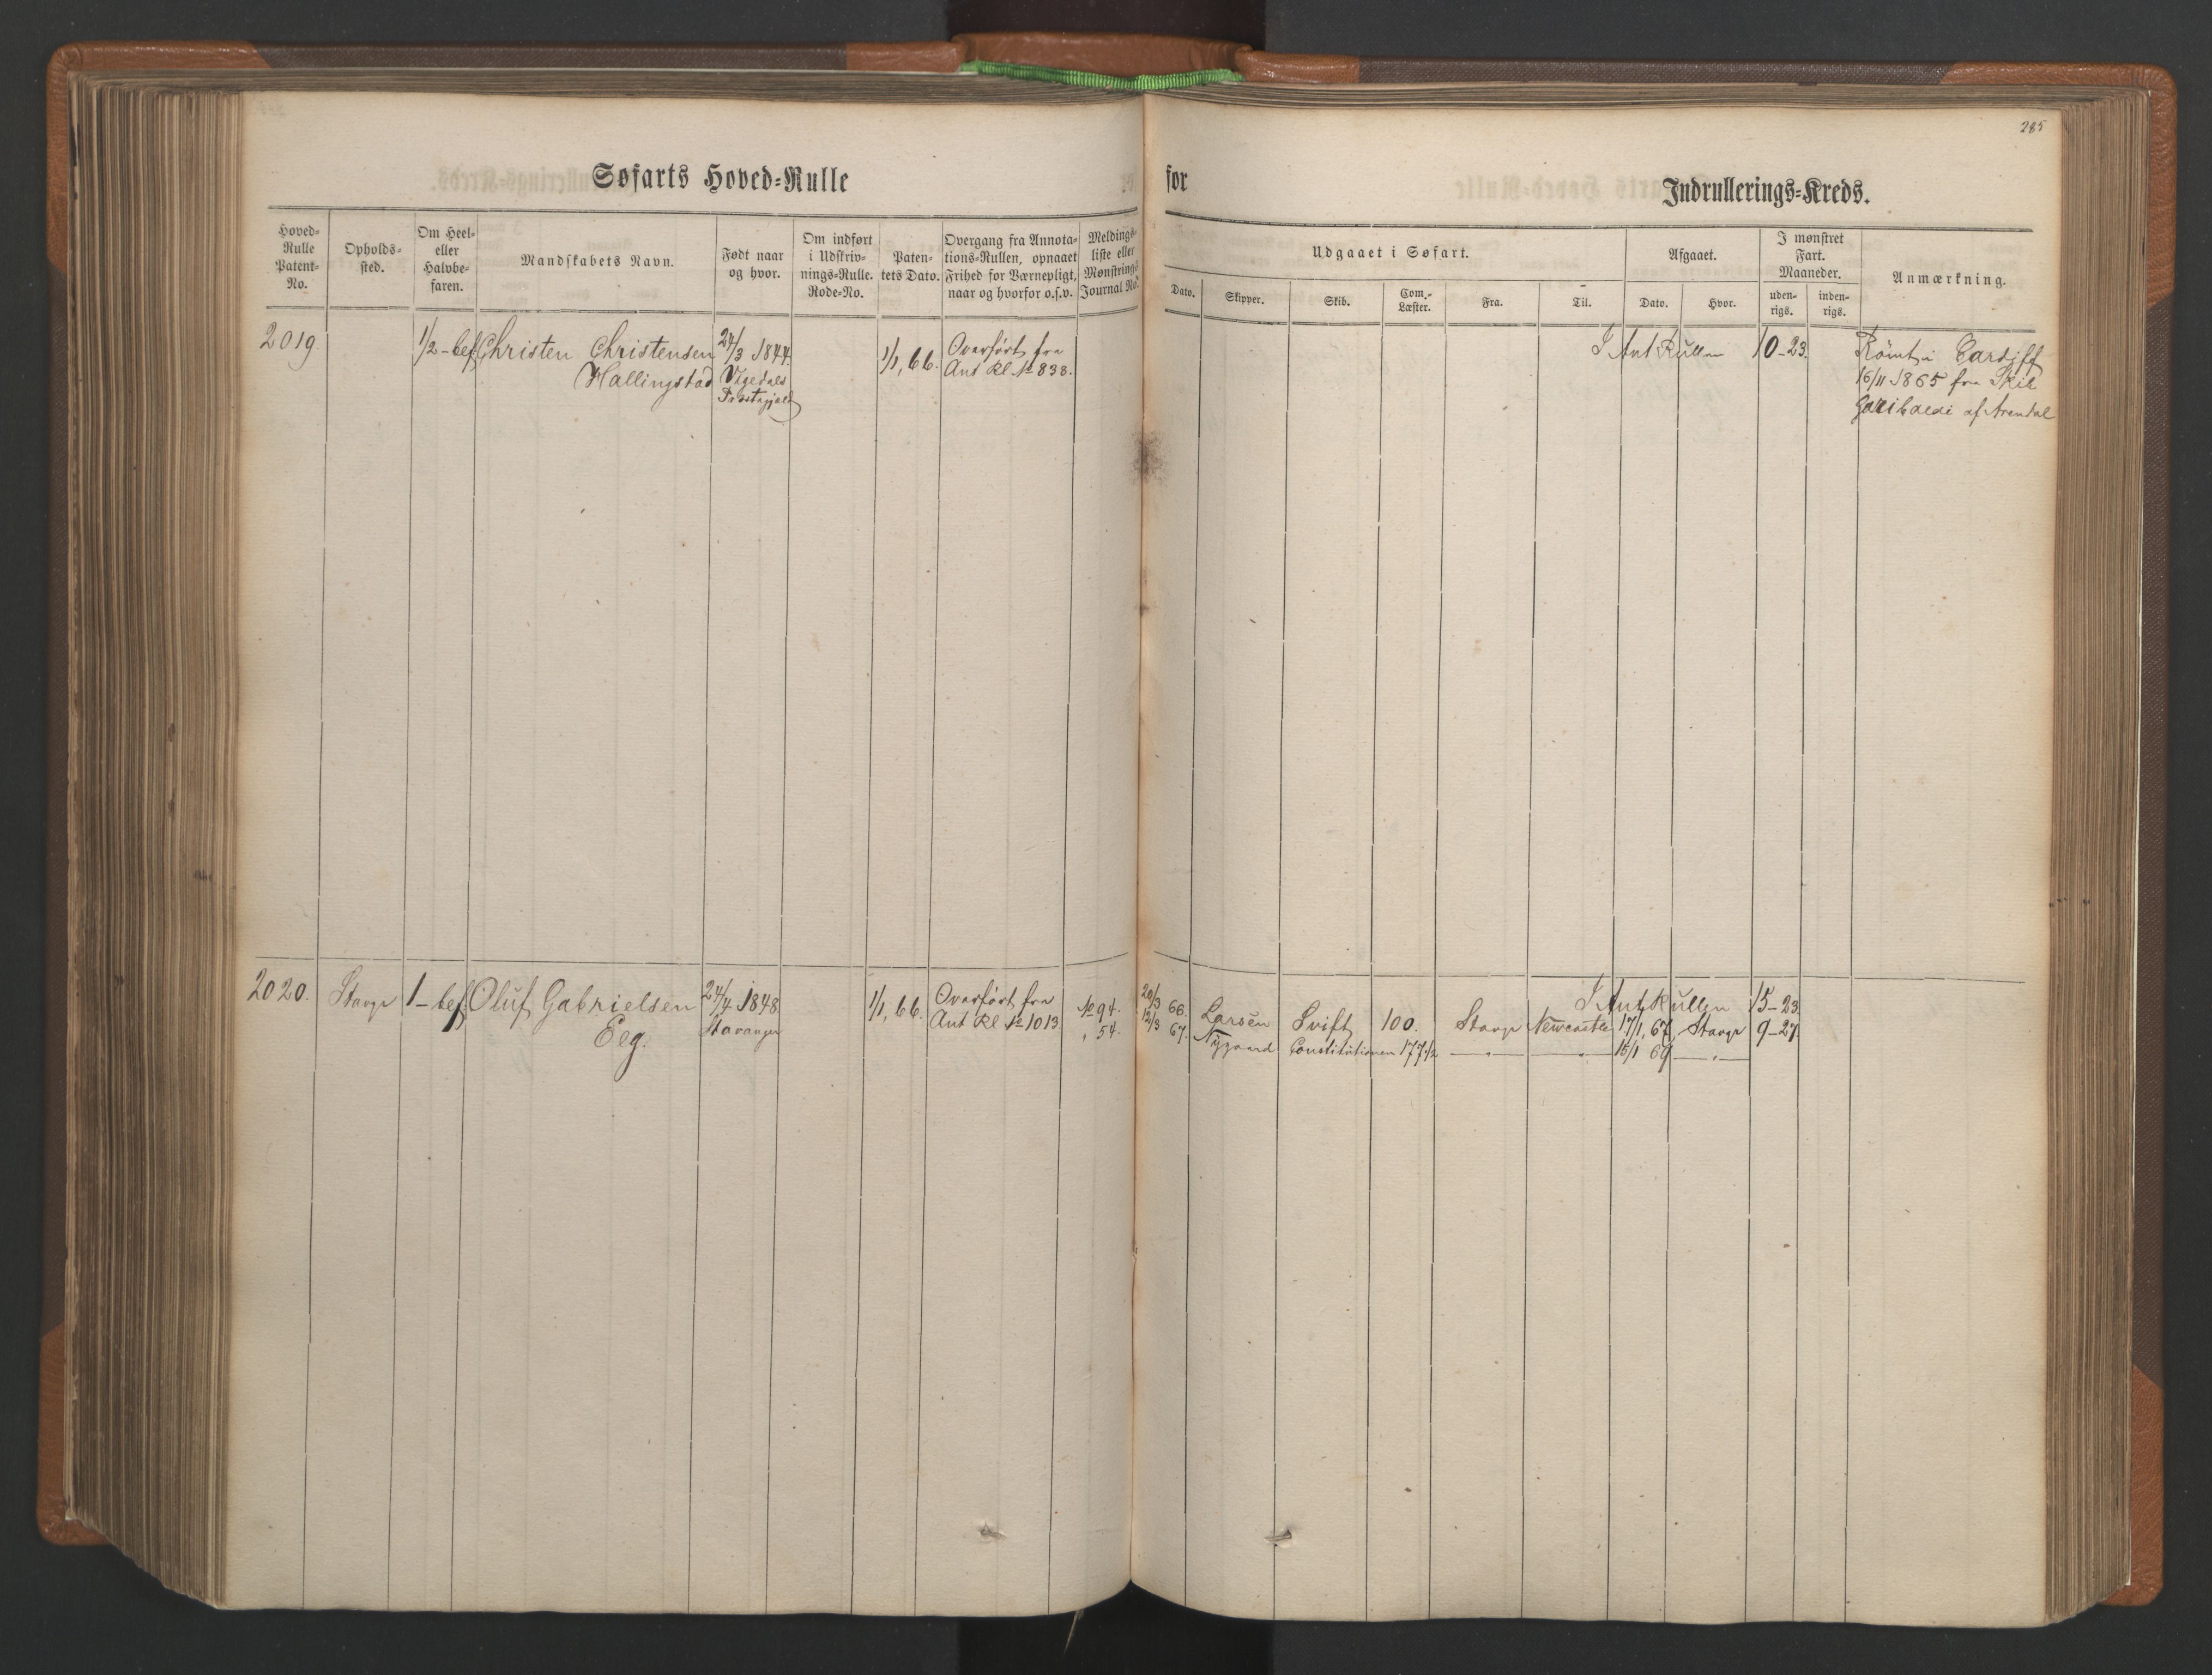 285
Søfarts Hoved=Rulle
for
Indrullerings=Kreds.
Hoved=
Rulle
Patent=
No.
Opholds=
sted.
Om Heel=
eller
Halvbe=
faren.
Mandskabets Navn.
Født naar
og hvor.
Om indført
i Udskriv=
nings=Rulle.
Rode=No.
Paten=
tets Dato.
Overgang fra Annota=
tions=Rullen, opnaaet
Frihed for Værnepligt,
naar og hvorfor o.s.v.
Meldings=
liste eller
Mønstrings
Journal No.
Udgaaet i Søfart.
Dato.
Skipper.
Skib.
Com.=
Læster.
Fra.
Til.
Afgaaet.
Dato.
Hvor.
I mønstret
Fart.
Maaneder.
uden=
rigs.
inden=
rigs.
Anmærkning.
2019.
1/2-bef
Christen Christensen
Hallingstad
24/3 1844.
Prestegjeld
1/1, 66.
Overført fra
Ant Rl No 838.
I Ant Rullen
10-23.
Rømt i Cardiff
16/11 1865 fra Skib
Garibaldi af Arendal
2020.
Stavgr
1-bef
Oluf Gabrielsen
Eeg.
24/4 1848
Stavanger
1/1, 66.
Overført fra
Ant Rl No 1013
No 94.
" 54.
I Ant Rullen
15-23.
20/3 66.
Larsen
Svift
100.
Stavgr
Newcastle
17/1, 67
Stavgr
9-27.
12/3 67.
Nygaard
Constitutionen
177 1/2
—"—
—"—
15/1 69
—"—